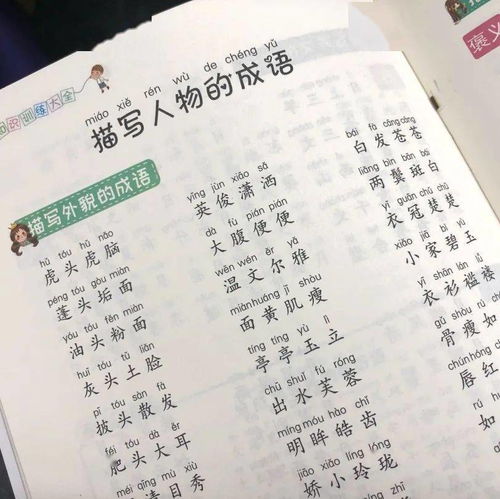 训练大全
miáo xiě rén wù de chéng yǔ
描写人物的成语
描写外貌的成语
hǔ tóu hǔ nǎo
虎头虎脑
péng tóu gòu miàn
蓬头垢面
yóu tóu fěn miàn
油头粉面
huī tóu tǔ liǎn
灰头土脸
pī tóu sàn fà
披头散发
féi tóu dà ěr
肥头大耳
méi qīng mù xiù
清目秀
yīng jùn xiāo sǎ
英俊潇洒
dà fù pián pián
大腹便便
wēn wén ěr yǎ
温文尔雅
miànhuáng jī shòu
面黄肌瘦
tíng tíng yù lì
亭亭玉立
chū shuǐ fú róng
出水芙蓉
míng móu hào chǐ
明眸皓齿
jiāo xiǎo líng lóng
娇小玲珑
bái fà cāng cāng
白发苍苍
liǎng bìn bān bái
两鬓斑白
yī guān chǔ chǔ
衣冠楚楚
xiǎo jiā bì yù
小家碧玉
yī shān lán lǚ
衣衫褴褛
gǔ shòu rú
骨瘦如
chúnhóng
唇红
rú
如
褒义